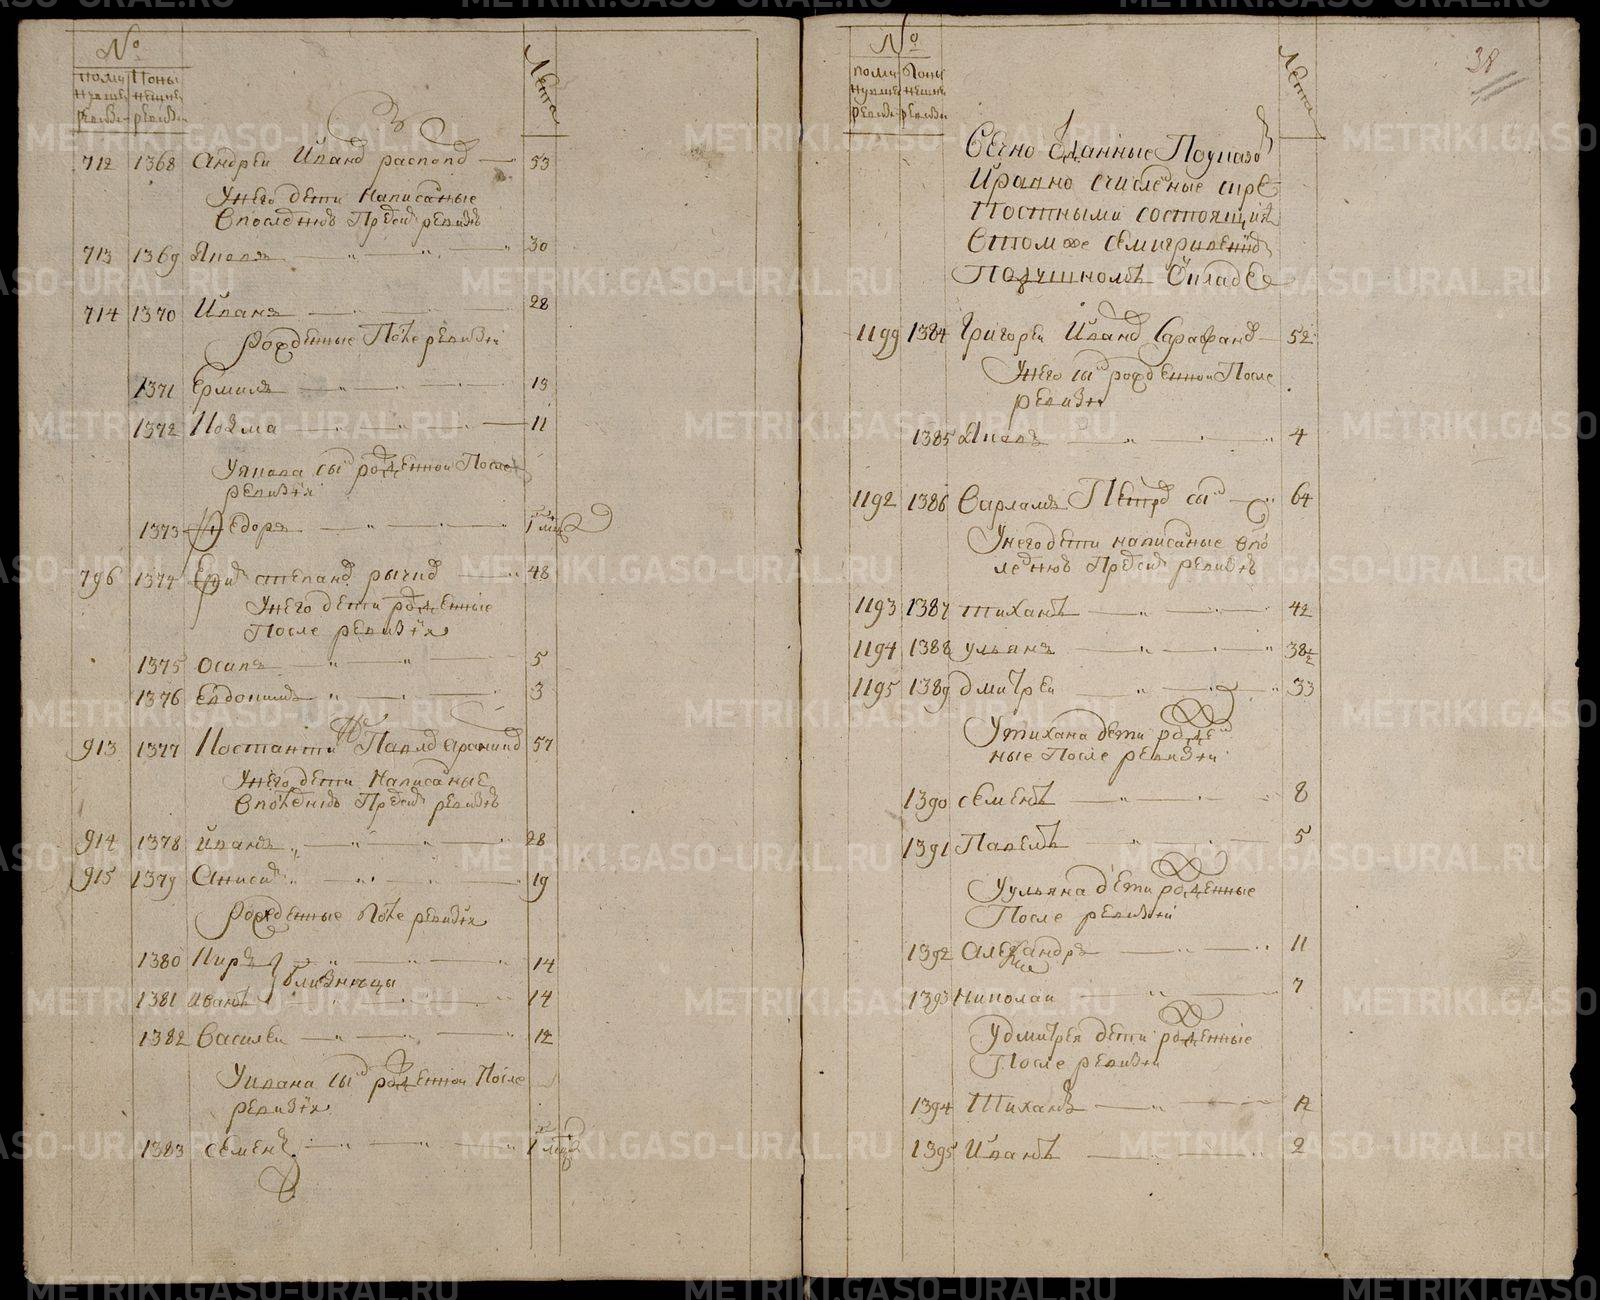 №
поми нуемы ревизи
Поны нешне ревизи
Лета
712 1368 Андреи Иванов распопов 53
У него дети написаные
в последнюю пред сим ревизию
713 1369 Яковъ 30
714 1370 Иванъ 28
Рожденные после ревизии
1371 Ермила 13
1372 Козма 11
У якова сын рожденнои После
ревизии
1373 Федоръ 1 мец
796 1374 степанов 48
У него дети рожденные
После ревизии
1375 Осипъ 5
1376 Евдокимъ 3
913 1377 Костантин Павлов 57
У него дети написаные
в последнюю пред сим ревизию
914 1378 иванъ 28
915 1379 Аниси 19
Рожденные после ревизии
1380 Киръ 14
близнецы
1381 иванъ 14
1382 Василеи 12
У ивана сын рожденнои После
ревизии
1383 семенъ 1 мец
38
№
поми нуемы ревизи
Поны нешне ревизи
Лета
Вечно отданные По указо
И равно счисленые с кре
постными состоящия
в томже семигривенно
Подушномъ окладе
1199 1384 Григореи Иванов Сарафанов 52
У него сын рожденнои После
ревизии
1385 Яковъ 4
1192 1386 Варламъ Петров сын 64
У него дети написаные в по
леднюю пред сим ревизию
1193 1387 тиханъ 42
1194 1388 ульянъ 38½
1195 1389 дмитреи 33
У тихана дети рожден
ные После ревизии
1390 семенъ 8
1391 Павелъ 5
У ульяна дети рожденные
После ревизии
1392 Александръ 11
1393 Николаи 7
У дмитрея дети рожденные
После ревизии
1394 Тиханъ
1395 Иванъ 2
METRIKI.GASO-URAL.RU